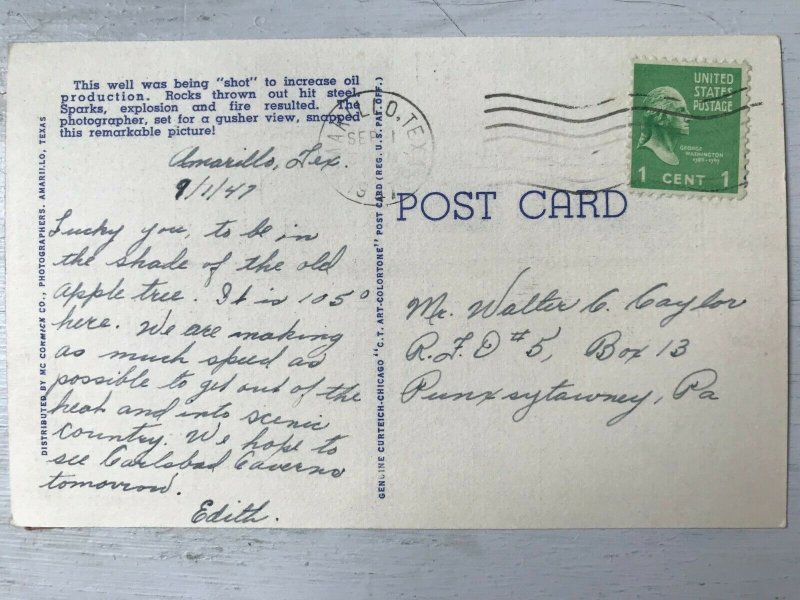 This well was being "shot" to increase oil
production. Rocks thrown out hit steel.
Sparks, explosion and fire resulted. The
photographer, set for a gusher view, snapped
this remarkable picture!
Amarillo, Tex.
9/1/47
Lucky you, to be in
the shade of the old
apple tree. It is 105°
here. We are making
as much speed as
possible to get out of the
heat and into scenic
country. We hope to
see Carlsbad Caverns
tomorrow.
Edith.
DISTRIBUTED BY MC CORMICK CO., PHOTOGRAPHERS, AMARILLO, TEXAS
GENUINE CURTEICH-CHICAGO "C.T. ART-COLORTONE" POST CARD (REG. U.S. PAT. OFF.)
AMARILLO, TEX
SEP 1
UNITED
STATES
POSTAGE
GEORGE
WASHINGTON
1789-1797
1 CENT 1
POST CARD
Mr. Walter C. Caylor
R.F.D #5, Box 13
Punxsytawney, Pa